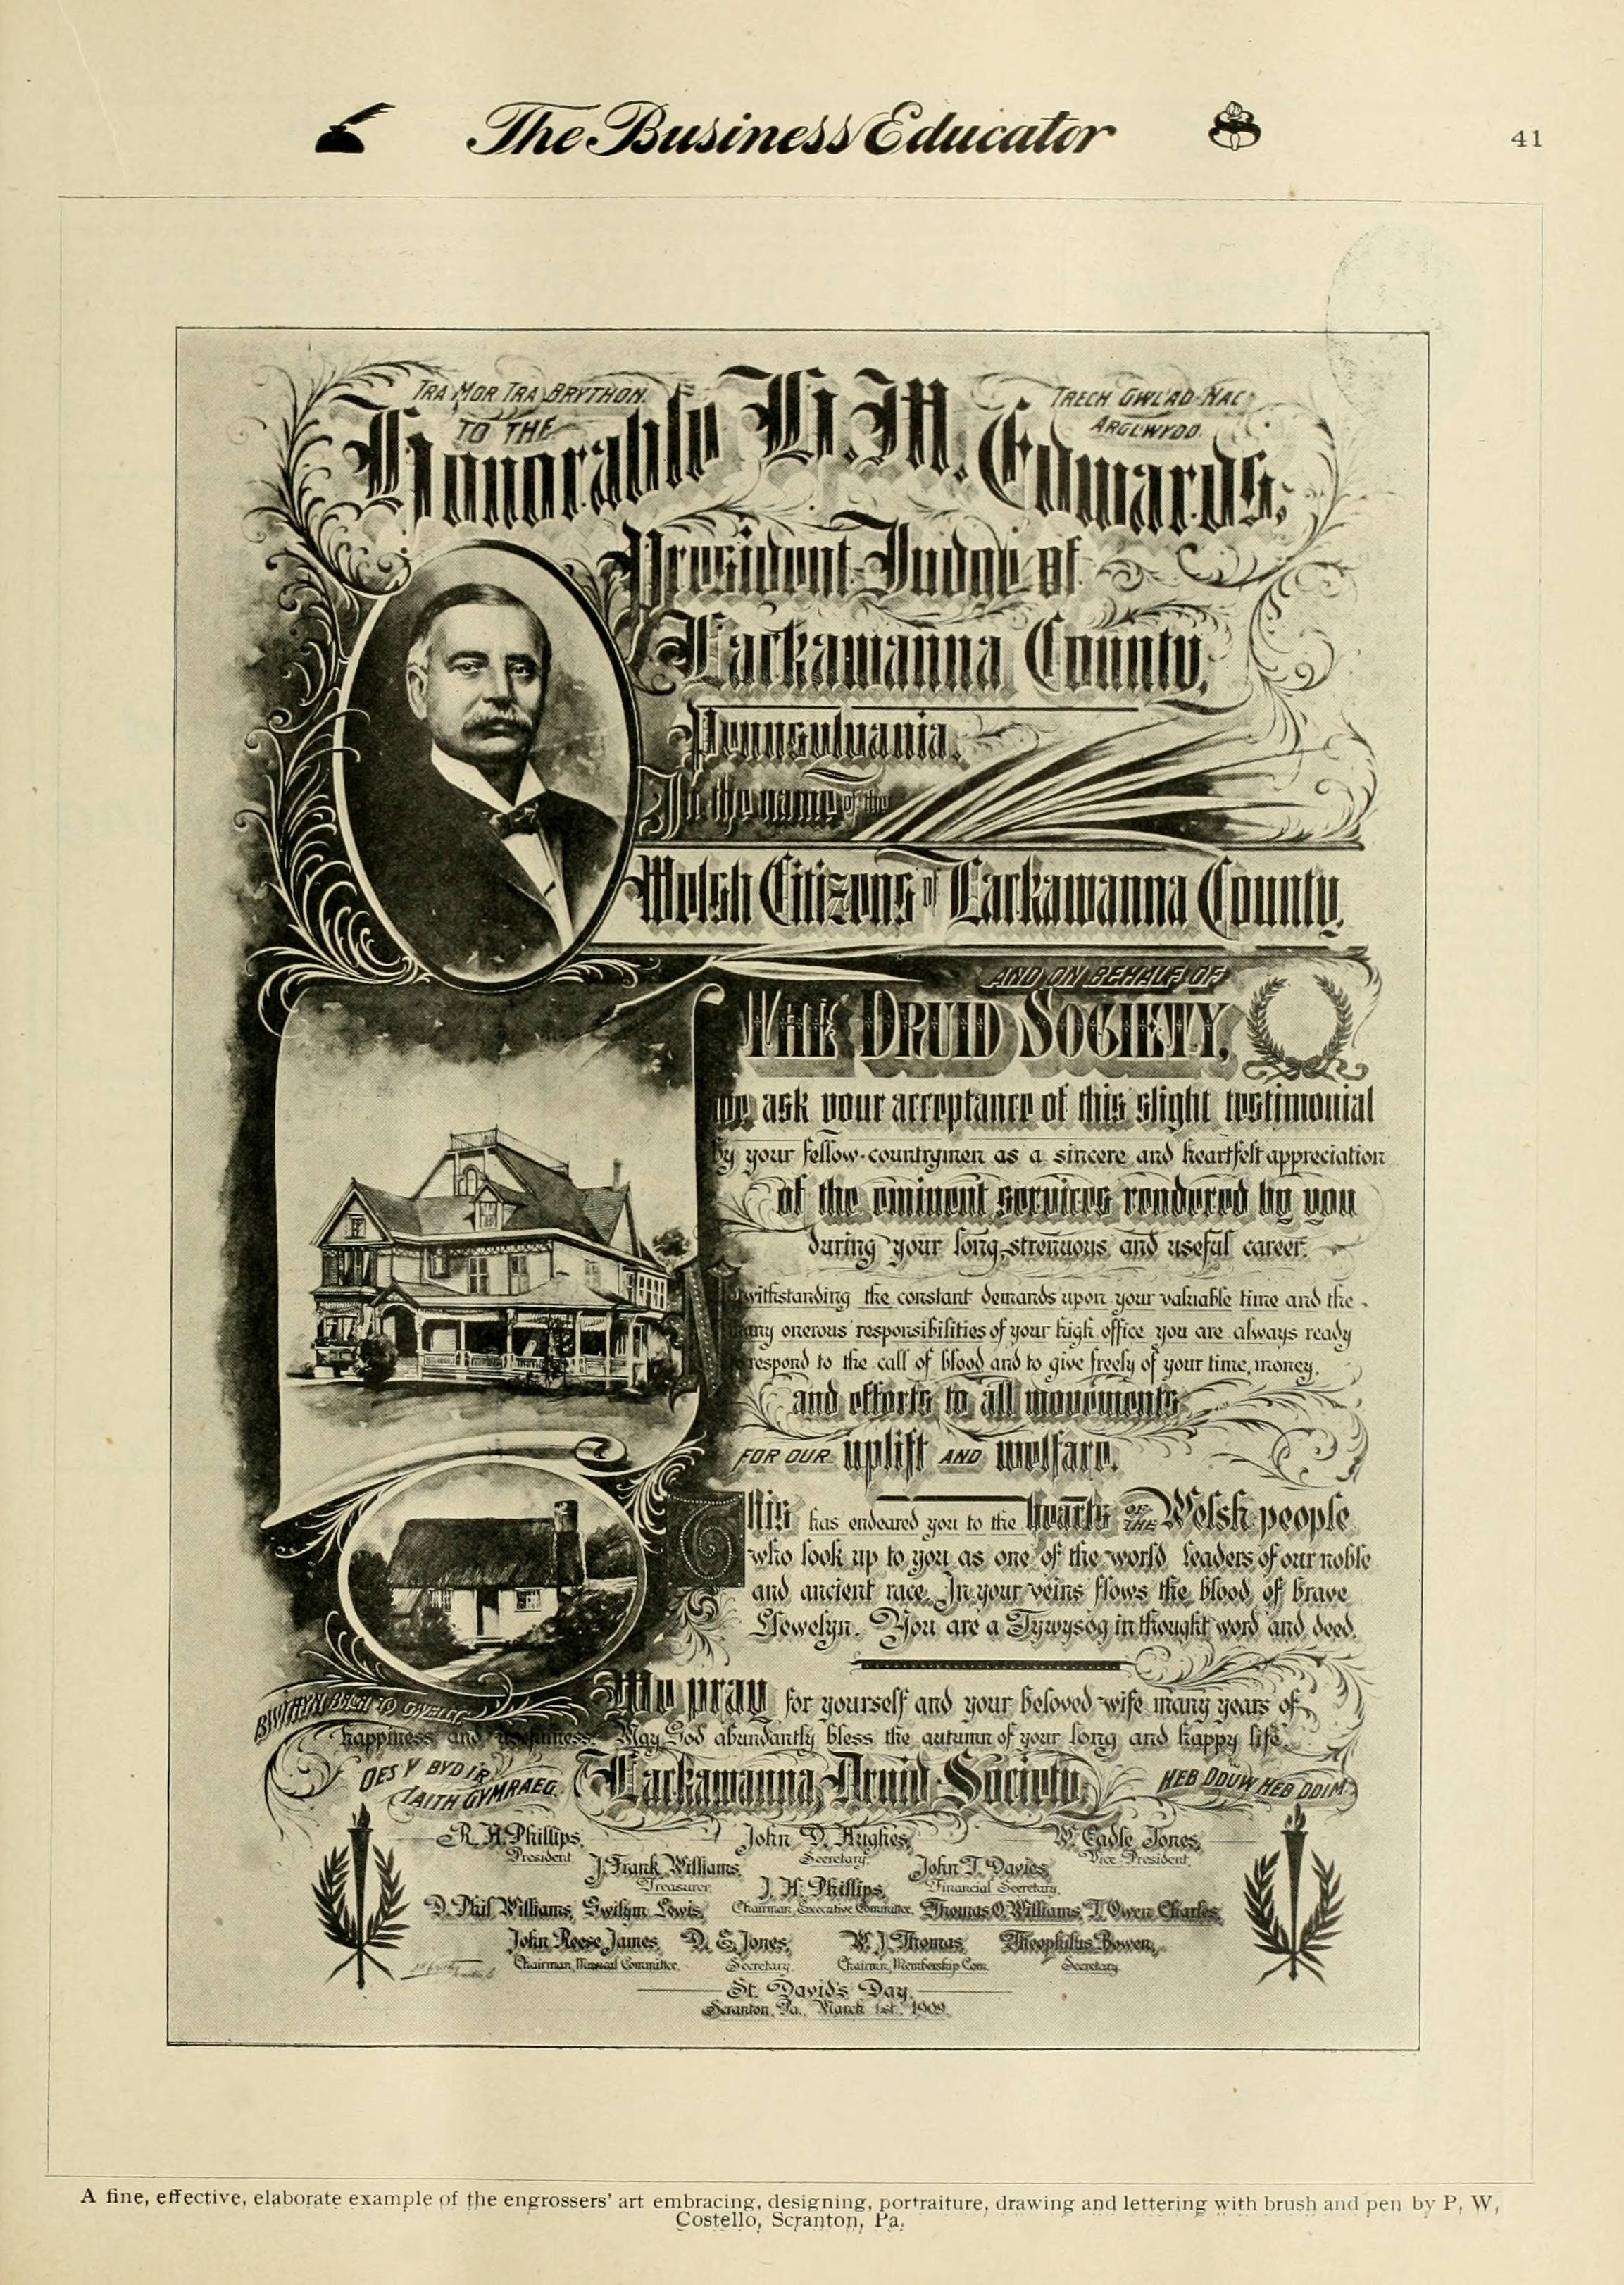 The Business Educator
41
TRA MOR TRA BRYTHON.
TRECH GWLAD NAC
ARGLWYDD.
TO THE
Honorable H. M. Edwards,
President Judge of
Lackawanna County,
Pennsylvania.
In the name of the
Welsh Citizens of Lackawanna County,
AND ON BEHALF OF
THE DRUID SOCIETY,
we ask your acceptance of this slight testimonial
by your fellow-countrymen as a sincere and heartfelt appreciation
of the eminent services rendered by you
during your long, strenuous and useful career.
Notwithstanding the constant demands upon your valuable time and the
many onerous responsibilities of your high office you are always ready
to respond to the call of blood and to give freely of your time, money,
and efforts to all movements
FOR OUR uplift AND welfare.
This has endeared you to the hearts OF THE Welsh people
who look up to you as one of the world leaders of our noble
and ancient race. In your veins flows the blood of brave
Llewelyn. You are a Tywysog in thought word and deed.
We pray for yourself and your beloved wife many years of
BWTHYN BACH TO GWELLT
happiness and usefulness. May God abundantly bless the autumn of your long and happy life.
OES Y BYD I'R
IAITH GYMRAEG.
Lackawanna Druid Society.
HEB DDUW HEB DDIM.
R. H. Phillips, John D. Hughes, W. Eadle Jones,
President. Secretary. Vice President.
J. Frank Williams, John T. Davies,
Treasurer. J. H. Phillips, Financial Secretary.
D. Phil Williams, Gwilym Lewis, Chairman, Executive Committee. Thomas O. Williams, T. Owen Charles,
John Reese James, D. E. Jones, W. J. Thomas, Theophilus Bowen,
Chairman, Musical Committee. Secretary. Chairman, Membership Com. Secretary.
St. David's Day.
Scranton, Pa., March 1st, 1909.
A fine, effective, elaborate example of the engrossers' art embracing, designing, portraiture, drawing and lettering with brush and pen by P. W.
Costello, Scranton, Pa.